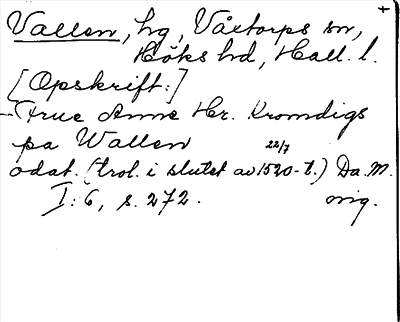 +
Vallen, hg, Våxtorps sn,
Höks hd, Hall. l.
[Opskrift:]
Frue Anne Hr. Kromdigs
pa Wallen
22/7
odat. (trol. i slutet av 1520-t.) Da. M.
I: 6, s. 272. orig.